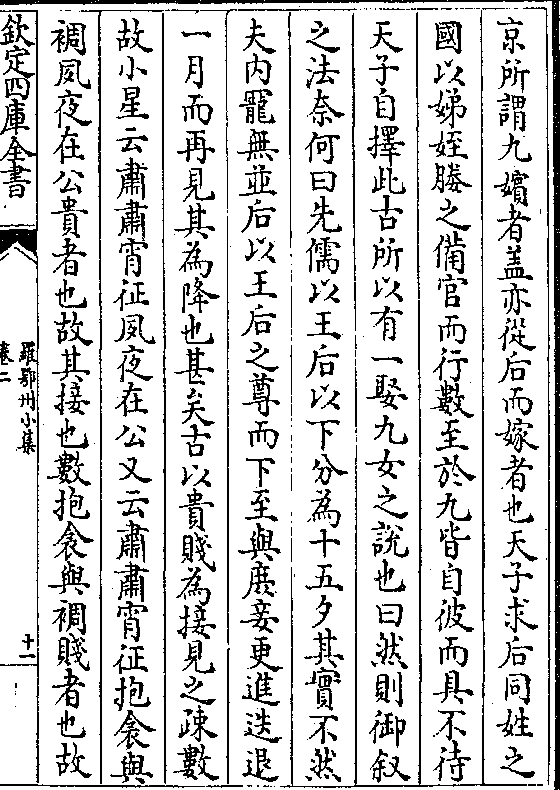 京所謂九嬪者蓋亦從后而嫁者也天子求后同姓之
國以娣姪媵之備官而行數至於九皆自彼而具不待
天子自擇此古所以有一娶九女之說也曰然則御叙
之法奈何曰先儒以王后以下分為十五夕其實不然
夫内寵無並后以王后之尊而下至與庶妾更進迭退
一月而再見其為降也甚矣古以貴賤為接見之疎數
故小星云肅肅宵征夙夜在公又云肅肅宵征抱衾與
裯夙夜在公貴者也故其接也數抱衾與裯賤者也故
欽定四庫全書
羅鄂州小集
卷二
十一